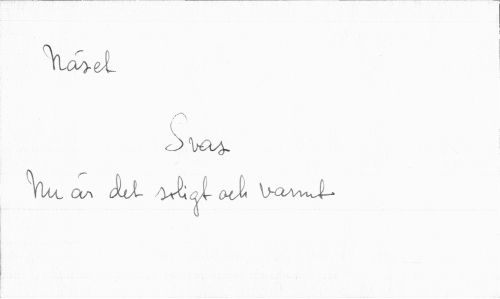 Näset
Svas
Nu är det soligt och varmt.